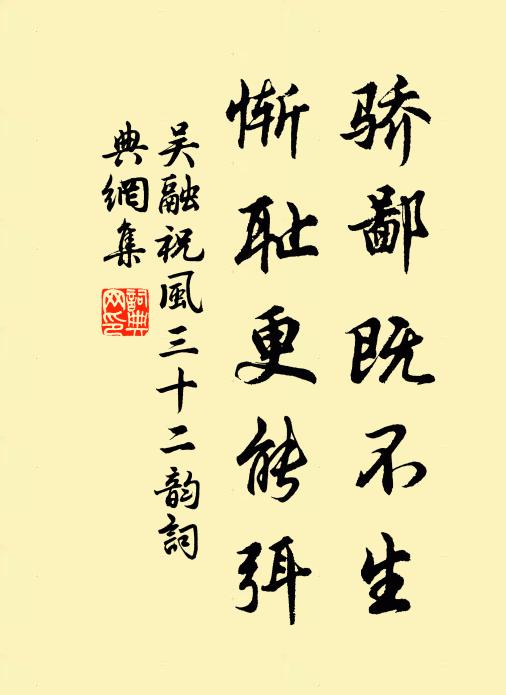 骄鄙既不生
惭耻更能弭
吴融祝風三十二韵詞
典網集
詞典
网印